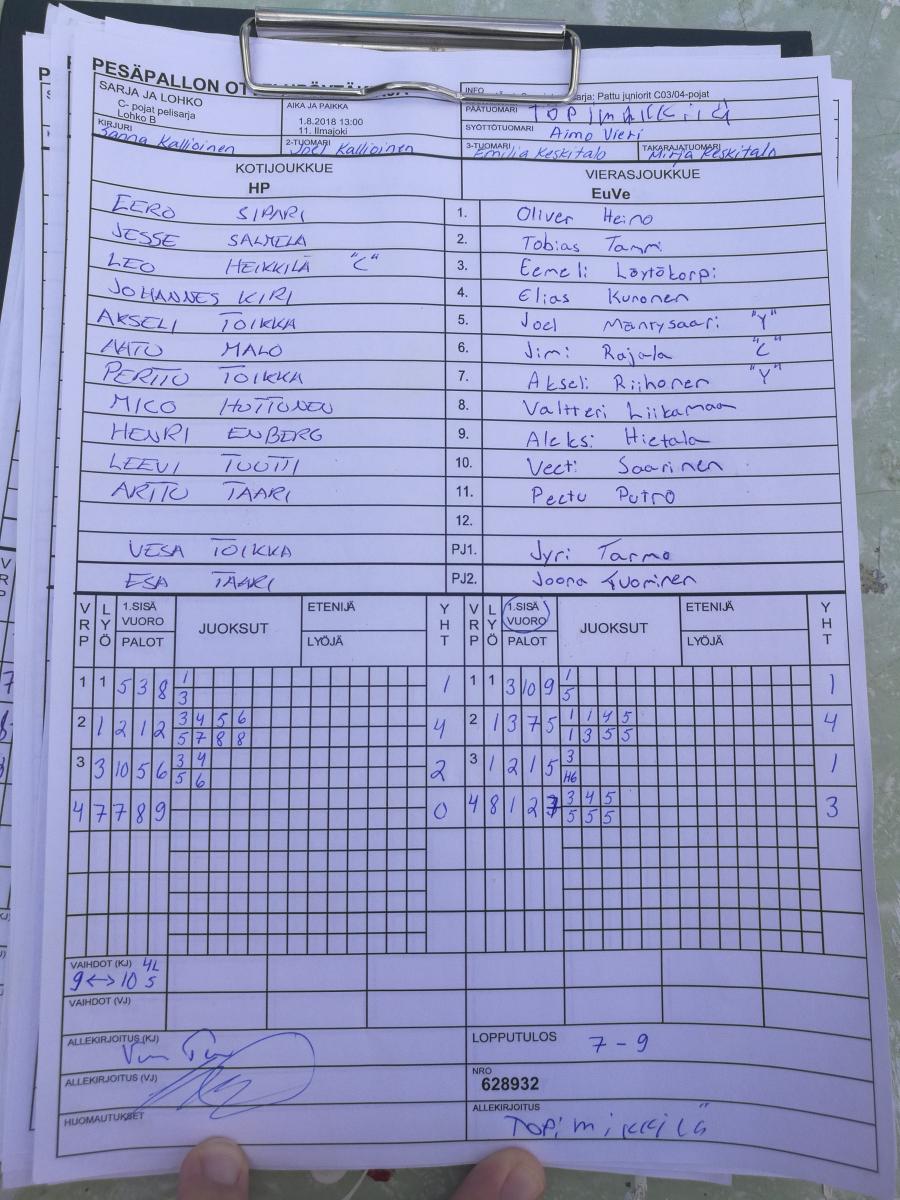 PESÄPALLON OT
SARJA JA LOHKO
C- pojat pelisarja
Lohko B
AIKA JA PAIKKA
1.8.2018 13:00
11. Ilmajoki
INFO
arja: Pattu juniorit C03/04-pojat
PÄÄTUOMARI
SYÖTTÖTUOMARI Aimo Vieri
KIRJURI Sanna Kallioinen
2-TUOMARI Joel Kallioinen
3-TUOMARI Emilia Keskitalo
TAKARAJATUOMARI Mirja Keskitalo
KOTIJOUKKUE VIERASJOUKKUE
HP EuVe
EERO SIPARI 1. Oliver Heino
JESSE SALMELA 2. Tobias Tammi
LEO HEIKKILÄ "C" 3. Eemeli Löytökorpi
JOHANNES KIRI 4. Elias Kuronen
AKSELI TOIKKA 5. Joel Mäntysaari "Y"
AATU MALO 6. Jimi Rajala "C"
PERTTU TOIKKA 7. Akseli Riihonen "Y"
MICO HUTTUNEN 8. Valtteri Liikamaa
HENRI ENBERG 9. Aleksi Hietala
LEEVI TUUTTI 10. Veeti Saarinen
ARTTU TAARI 11. Peetu Putro
12.
VESA TOIKKA PJ1. Jyri Tarmo
ESA TAARI PJ2. Joona Tuominen
VRP LYÖ 1.SISÄ VUORO PALOT JUOKSUT ETENIJÄ LYÖJÄ YHT VRP LYÖ 1.SISÄ VUORO PALOT JUOKSUT ETENIJÄ LYÖJÄ YHT
1 1 5 3 8 1 1 1 1 3 10 9 1 1
3 5
2 1 2 1 2 3 4 5 6 4 2 1 3 7 5 1 1 4 5 4
5 7 8 8 1 3 5 5
3 3 10 5 6 3 4 2 3 1 2 1 5 3 1
5 6 H6
4 7 7 8 9 0 4 8 1 2 3 4 5 3
5 5 5
VAIHDOT (KJ) 4L
9 ↔ 10 5
VAIHDOT (VJ)
ALLEKIRJOITUS (KJ)
LOPPUTULOS 7 - 9
ALLEKIRJOITUS (VJ)
NRO
628932
HUOMAUTUKSET
ALLEKIRJOITUS